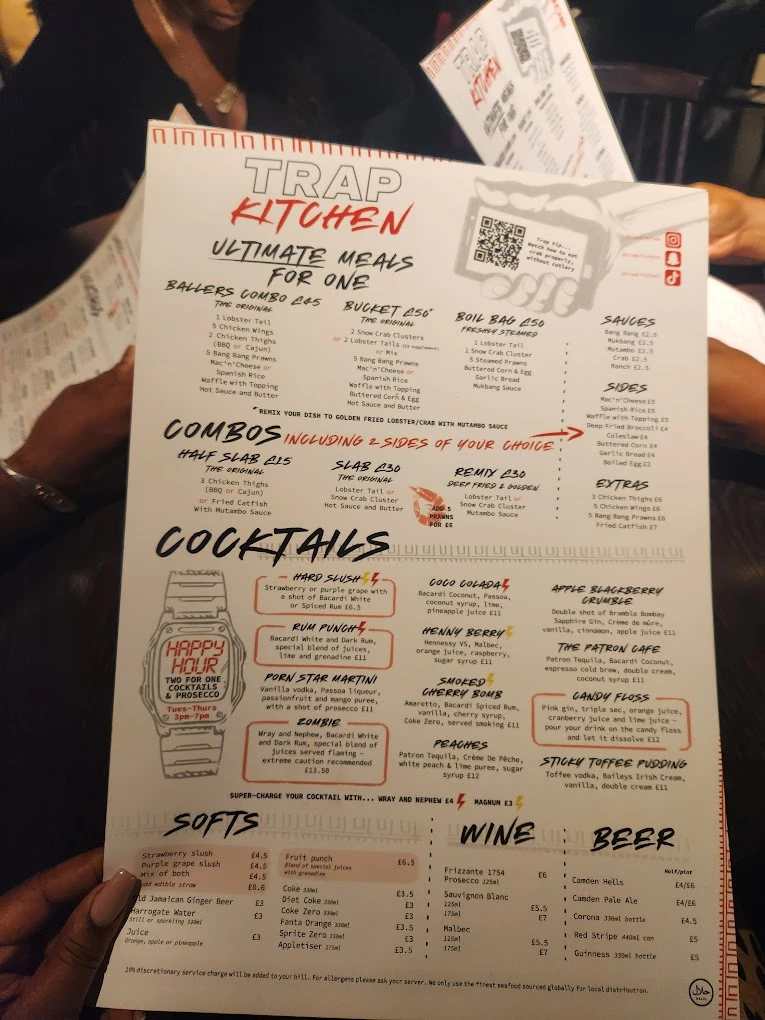 TRAP
KITCHEN
ULTIMATE MEALS
FOR ONE
Trap tip...
Watch how to eat
crab properly,
without cutlery
BALLERS COMBO £45
THE ORIGINAL
1 Lobster Tail
5 Chicken Wings
2 Chicken Thighs
(BBQ or Cajun)
5 Bang Bang Prawns
Mac'n'Cheese or
Spanish Rice
Waffle with Topping
Hot Sauce and Butter
BUCKET £50*
THE ORIGINAL
2 Snow Crab Clusters
or 2 Lobster Tails
or Mix
5 Bang Bang Prawns
Mac'n'Cheese or
Spanish Rice
Waffle with Topping
Buttered Corn & Egg
Hot Sauce and Butter
BOIL BAG £50
FRESHLY STEAMED
1 Lobster Tail
1 Snow Crab Cluster
5 Steamed Prawns
Buttered Corn & Egg
Garlic Bread
Mukbang Sauce
*REMIX YOUR DISH TO GOLDEN FRIED LOBSTER/CRAB WITH MUTAMBO SAUCE
SAUCES
Bang Bang £2.5
Mukbang £2.5
Mutambo £2.5
Crab £2.5
Ranch £2.5
SIDES
Mac'n'Cheese £5
Spanish Rice £5
Waffle with Topping £5
Deep Fried Broccoli £4
Coleslaw £4
Buttered Corn £4
Garlic Bread £4
Boiled Egg £2
EXTRAS
3 Chicken Thighs £6
5 Chicken Wings £6
5 Bang Bang Prawns £6
Fried Catfish £7
COMBOS INCLUDING 2 SIDES OF YOUR CHOICE
HALF SLAB £15
THE ORIGINAL
3 Chicken Thighs
(BBQ or Cajun)
or Fried Catfish
With Mutambo Sauce
SLAB £30
THE ORIGINAL
Lobster Tail or
Snow Crab Cluster
Hot Sauce and Butter
ADD 5
PRAWNS
FOR £6
REMIX £30
DEEP FRIED & GOLDEN
Lobster Tail or
Snow Crab Cluster
Mutambo Sauce
COCKTAILS
HAPPY
HOUR
TWO FOR ONE
COCKTAILS
& PROSECCO
Tues-Thurs
3pm-7pm
HARD SLUSH
Strawberry or purple grape with
a shot of Bacardi White
or Spiced Rum £6.5
RUM PUNCH
Bacardi White and Dark Rum,
special blend of juices,
lime and grenadine £11
PORN STAR MARTINI
Vanilla vodka, Passoa liqueur,
passionfruit and mango puree,
with a shot of prosecco £11
ZOMBIE
Wray and Nephew, Bacardi White
and Dark Rum, special blend of
juices served flaming -
extreme caution recommended
£13.50
COCO COLADA
Bacardi Coconut, Passoa,
coconut syrup, lime,
pineapple juice £11
HENNY BERRY
Hennessy VS, Malbec,
orange juice, raspberry,
sugar syrup £11
SMOKED
CHERRY BOMB
Amaretto, Bacardi Spiced Rum,
vanilla, cherry syrup,
Coke Zero, served smoking £11
PEACHES
Patron Tequila, Crème De Pêche,
white peach & lime puree, sugar
syrup £12
APPLE BLACKBERRY
CRUMBLE
Double shot of Bramble Bombay
Sapphire Gin, Crème de mûre,
vanilla, cinnamon, apple juice £11
THE PATRON CAFE
Patron Tequila, Bacardi Coconut,
espresso cold brew, double cream,
coconut syrup £11
CANDY FLOSS
Pink gin, triple sec, orange juice,
cranberry juice and lime juice -
pour your drink on the candy floss
and let it dissolve £12
STICKY TOFFEE PUDDING
Toffee vodka, Baileys Irish Cream,
vanilla, double cream £11
SUPER-CHARGE YOUR COCKTAIL WITH... WRAY AND NEPHEW £4 MAGNUM £3
SOFTS
Strawberry slush £4.5
Purple grape slush £4.5
Mix of both £4.5
add edible straw £0.6
Old Jamaican Ginger Beer £3
Harrogate Water £3
Still or sparkling 330ml
Juice £3
Orange, apple or pineapple
Fruit punch £6.5
Blend of special juices
with grenadine
Coke 330ml £3.5
Diet Coke 330ml £3
Coke Zero 330ml £3
Fanta Orange 330ml £3.5
Sprite Zero 330ml £3
Appletiser 275ml £3.5
WINE
Frizzante 1754 £6
Prosecco 125ml
Sauvignon Blanc
125ml £5.5
175ml £7
Malbec
125ml £5.5
175ml £7
BEER
Half/pint
Camden Hells £4/£6
Camden Pale Ale £4/£6
Corona 330ml bottle £4.5
Red Stripe 440ml can £5
Guinness 330ml bottle £5
10% discretionary service charge will be added to your bill. For allergens please ask your server. We only use the finest seafood sourced globally for local distribution.
حلال
HALAL
TRAP
KITCHEN
ULTIMATE MEALS
FOR ONE